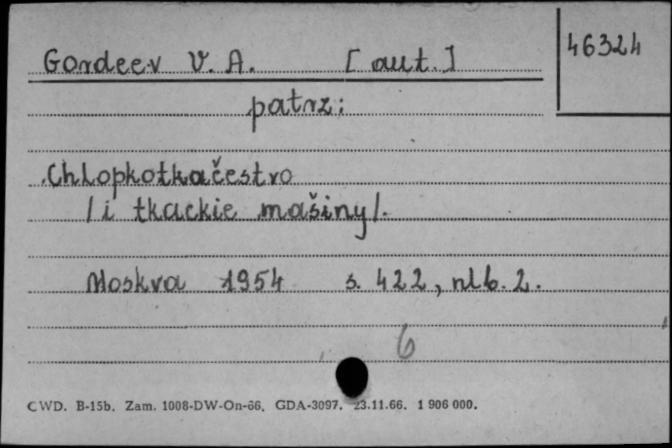 Gordeev V. A. [aut.]
46324
patrz:
Chlopkotkačestvo
/i tkackie mašiny/.
Moskva 1954 s. 422, nlb. 2.
6
CWD. B-15b. Zam. 1008-DW-On-66. GDA-3097. 23.11.66. 1 906 000.